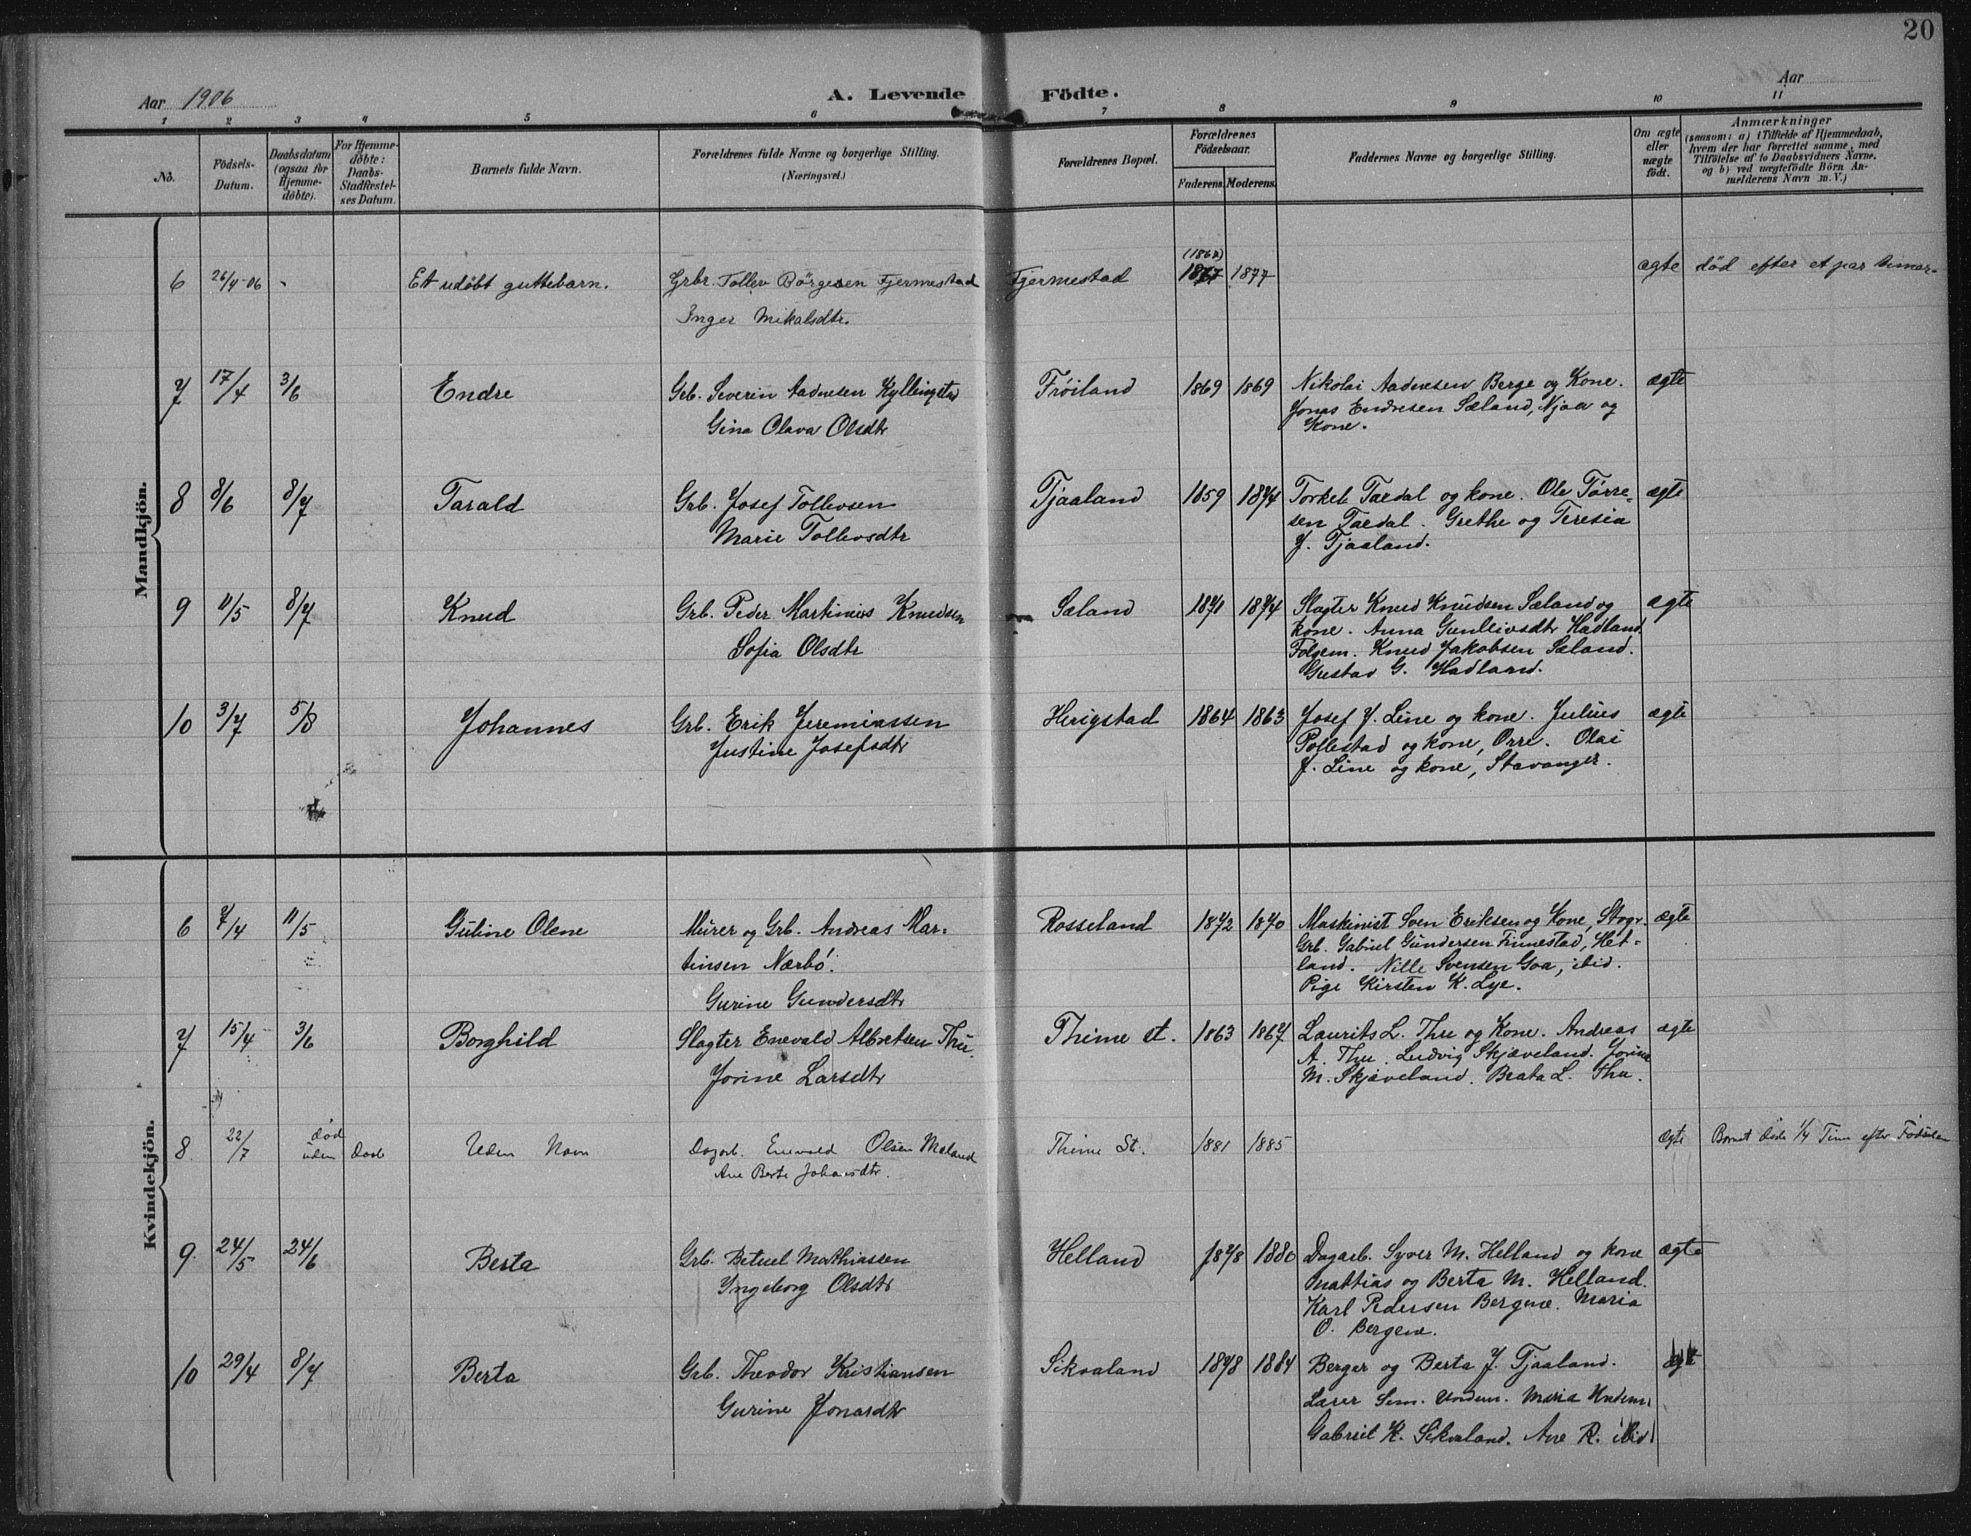 20
Aar 1906
A. Levende Födte.
Aar
1 2 3 4 5 6 7 8 9 10 11
No.
Födsels-Datum.
Daabsdatum (ogsaa for Hjemme-døbte).
For Hjemme-døbte: Daabs-Stadfæstel-ses Datum.
Barnets fulde Navn.
Forældrenes fulde Navne og borgerlige Stilling. (Næringsvei.)
Forældrenes Bopæl.
Forældrenes Födselsaar.
Faderens. Moderens.
Faddernes Navne og borgerlige Stilling.
Om ægte eller uægte födt.
Anmærkninger
(saasom: a) i Tilfælde af Hjemmedaab, hvem der har forrettet samme, med Tilföielse af to Daabsvidners Navne, og b) ved uægtefödte Börn An-melderens Navn m. V.)
Mandkjön.
6 26/4-06 - Et udöbt guttebarn. Grbr. Tollev Börgesen Fjermestad Fjermestad (1867) 1877 ægte död efter et par timer-
Inger Mikalsdtr.
7 17/4 3/6 Endre Grb. Severin Aadnesen Kyllingstad Fröiland 1869 1869 Nikolai Aadnesen Berge og Kone. ægte
Gina Olava Olsdtr Jonas Endresen Sæland, Njaa og
Kone.
8 8/6 8/7 Tarald Grb. Josef Tollevsen Tjaaland 1859 1874 Torkel Taedal og kone. Ole Tørre- ægte
Marie Tollevsdtr sen Taedal. Grethe og Teresia
J. Tjaaland.
9 11/5 8/7 Knud Grb. Peder Martinius Knudsen Sæland 1871 1874 Slagter Knud Knudsen Sæland og ægte
Sofia Olsdtr kone. Anna Gunleivsdtr Hadland
Folgem. Knud Jakobsen Sæland.
Gustav G. Hadland.
10 3/7 5/8 Johannes Grb. Erik Jeremiassen Herigstad 1864 1863 Josef J. Line og kone. Julius ægte
Justine Josefsdtr Pollestad og kone, Orre. Olai
J. Line og kone, Stavanger.
Kvindekjön.
6 7/4 11/5 Guline Olene Murer og Grb. Andreas Mar- Rosseland 1872 1870 Maskinist Sven Eriksen og Kone, ægte
tinsen Nærbö. Grb. Gabriel Gundersen Finnestad, Het-
Gurine Gundersdtr land. Nille Svensen Goa, ibid.
Pige Kirsten K. Lye.
7 15/4 3/6 Borghild Slagter Enevald Albretsen Thu. Thime st. 1863 1867 Laurits L. Thu og Kone. Andreas ægte
Jorine Larsdtr A. Thu. Ludvig Skjæveland. Jorine
M. Skjæveland. Beata L. Thu.
8. 22/7 död uden daab Uden Navn Dagarb. Enevald Olsen Mæland Thime St. 1881 1885 ægte Barnet döde 1/4 Time efter Födselen
Ane Berte Johansdtr.
9. 24/5 24/6 Berta Grb. Betuel Mathiassen Helland 1878 1880 Dagarb. Syver M. Helland og kone ægte
Ingeborg Olsdtr Mattias og Berta M. Helland.
Karl Pedersen Bergene. Maria
O. Bergene.
10 29/4 8/7 Berta Grb. Theodor Kristiansen Sikvaland 1878 1884 Berger og Berta J. Tjaaland. ægte
Gurine Jonasdtr Lærer Sem. Undem. Maria Undem.
Gabriel K. Sikvaland. Ane R. ibid